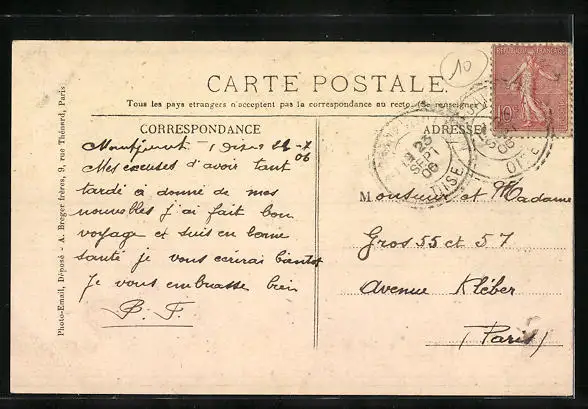 10
CARTE POSTALE
Tous les pays étrangers n'acceptent pas la correspondance au recto. (Se renseigner
CORRESPONDANCE
ADRESSE
REPUBLIQUE FRANÇAISE
10
23
SEPT
06
OISE
OISE
06
Mes excuses d'avoir tant
tardé à donné de mes
nouvelles j'ai fait bon
voyage et suis en bonne
santé je vous écrirai bientot
Je vous embrasse bien
B. F.
Monsieur et Madame
Gros 55 et 57
Avenue Kléber
(Paris)
Photo-Email, Déposé - A. Breger frères, 9, rue Thénard, Paris